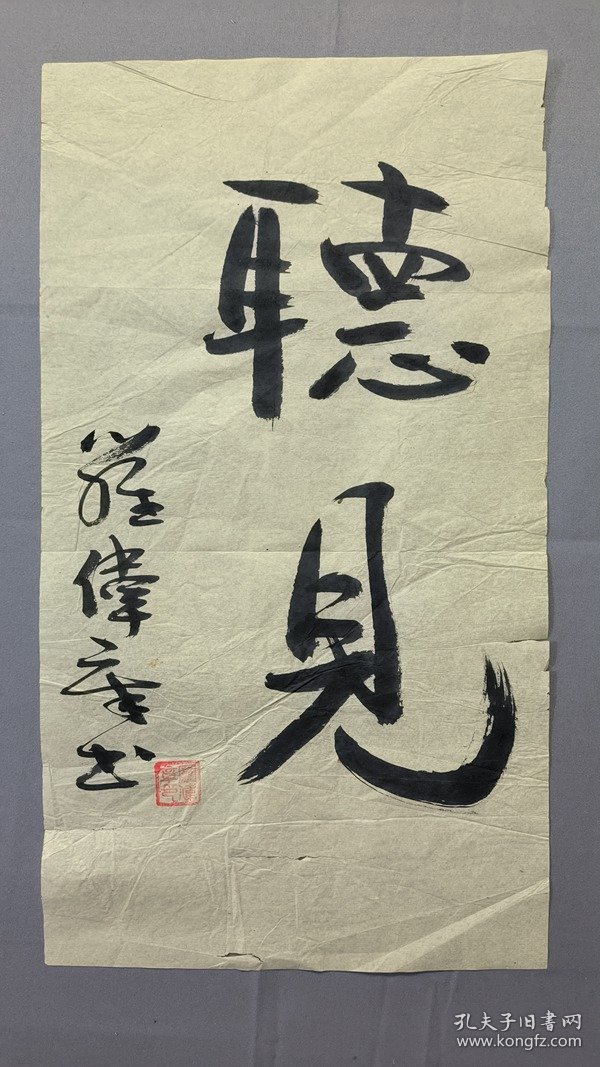 聽見
羅偉章书
孔夫子旧書网
www.kongfz.com